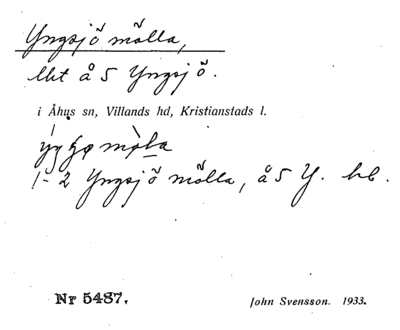 Yngsjö mölla,
lht å 5 Yngsjö.
i Åhus sn, Villands hd, Kristianstads l.
1-2 Yngsjö mölla, å 5 Y. hb.
Nr 5487.
John Svensson. 1933.